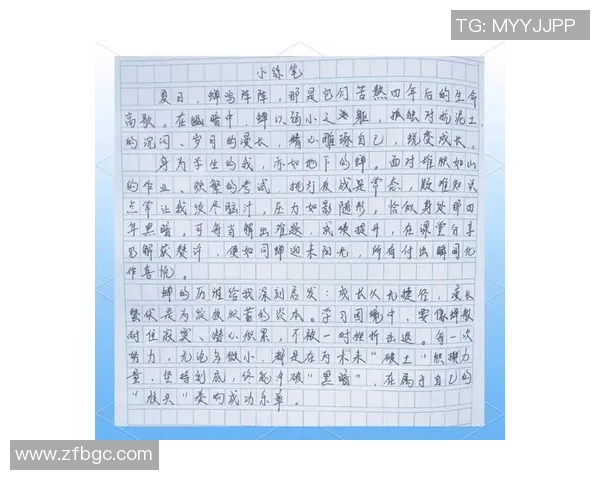 TG: MYYJJPP
小练笔
夏日，蝉鸣阵阵，那是它们苦熬四年后的生命
高歌。在幽暗中，蝉以弱小之躯，孤独对抗泥土
的沉闷、岁月的漫长，精心雕琢自己，蜕变成长。
身为学生的我，亦如地下的蝉。面对堆积如山
的作业、频繁的考试，挑灯夜战是常态，败难知识
点常让我绞尽脑汁，压力如影随形，恰似身处那四
年黑暗。可每当解出难题，成绩提升，在课堂分享
见解获赞许，便如同蝉迎来阳光，所有付出瞬间化
作喜悦。
蝉的历程给我深刻启发：成长从无捷径，漫长
蛰伏是为绽放积蓄的资本。学习困境中，要像蝉般
耐住寂寞、潜心积累，不被一时挫折击退。每一次
努力，无论多微小，都是在为未来“破土”积攒力
量，坚持到底，终能冲破“黑暗”，在属于自己的
“枝头”奏响成功乐章。
www.zfbgc.com